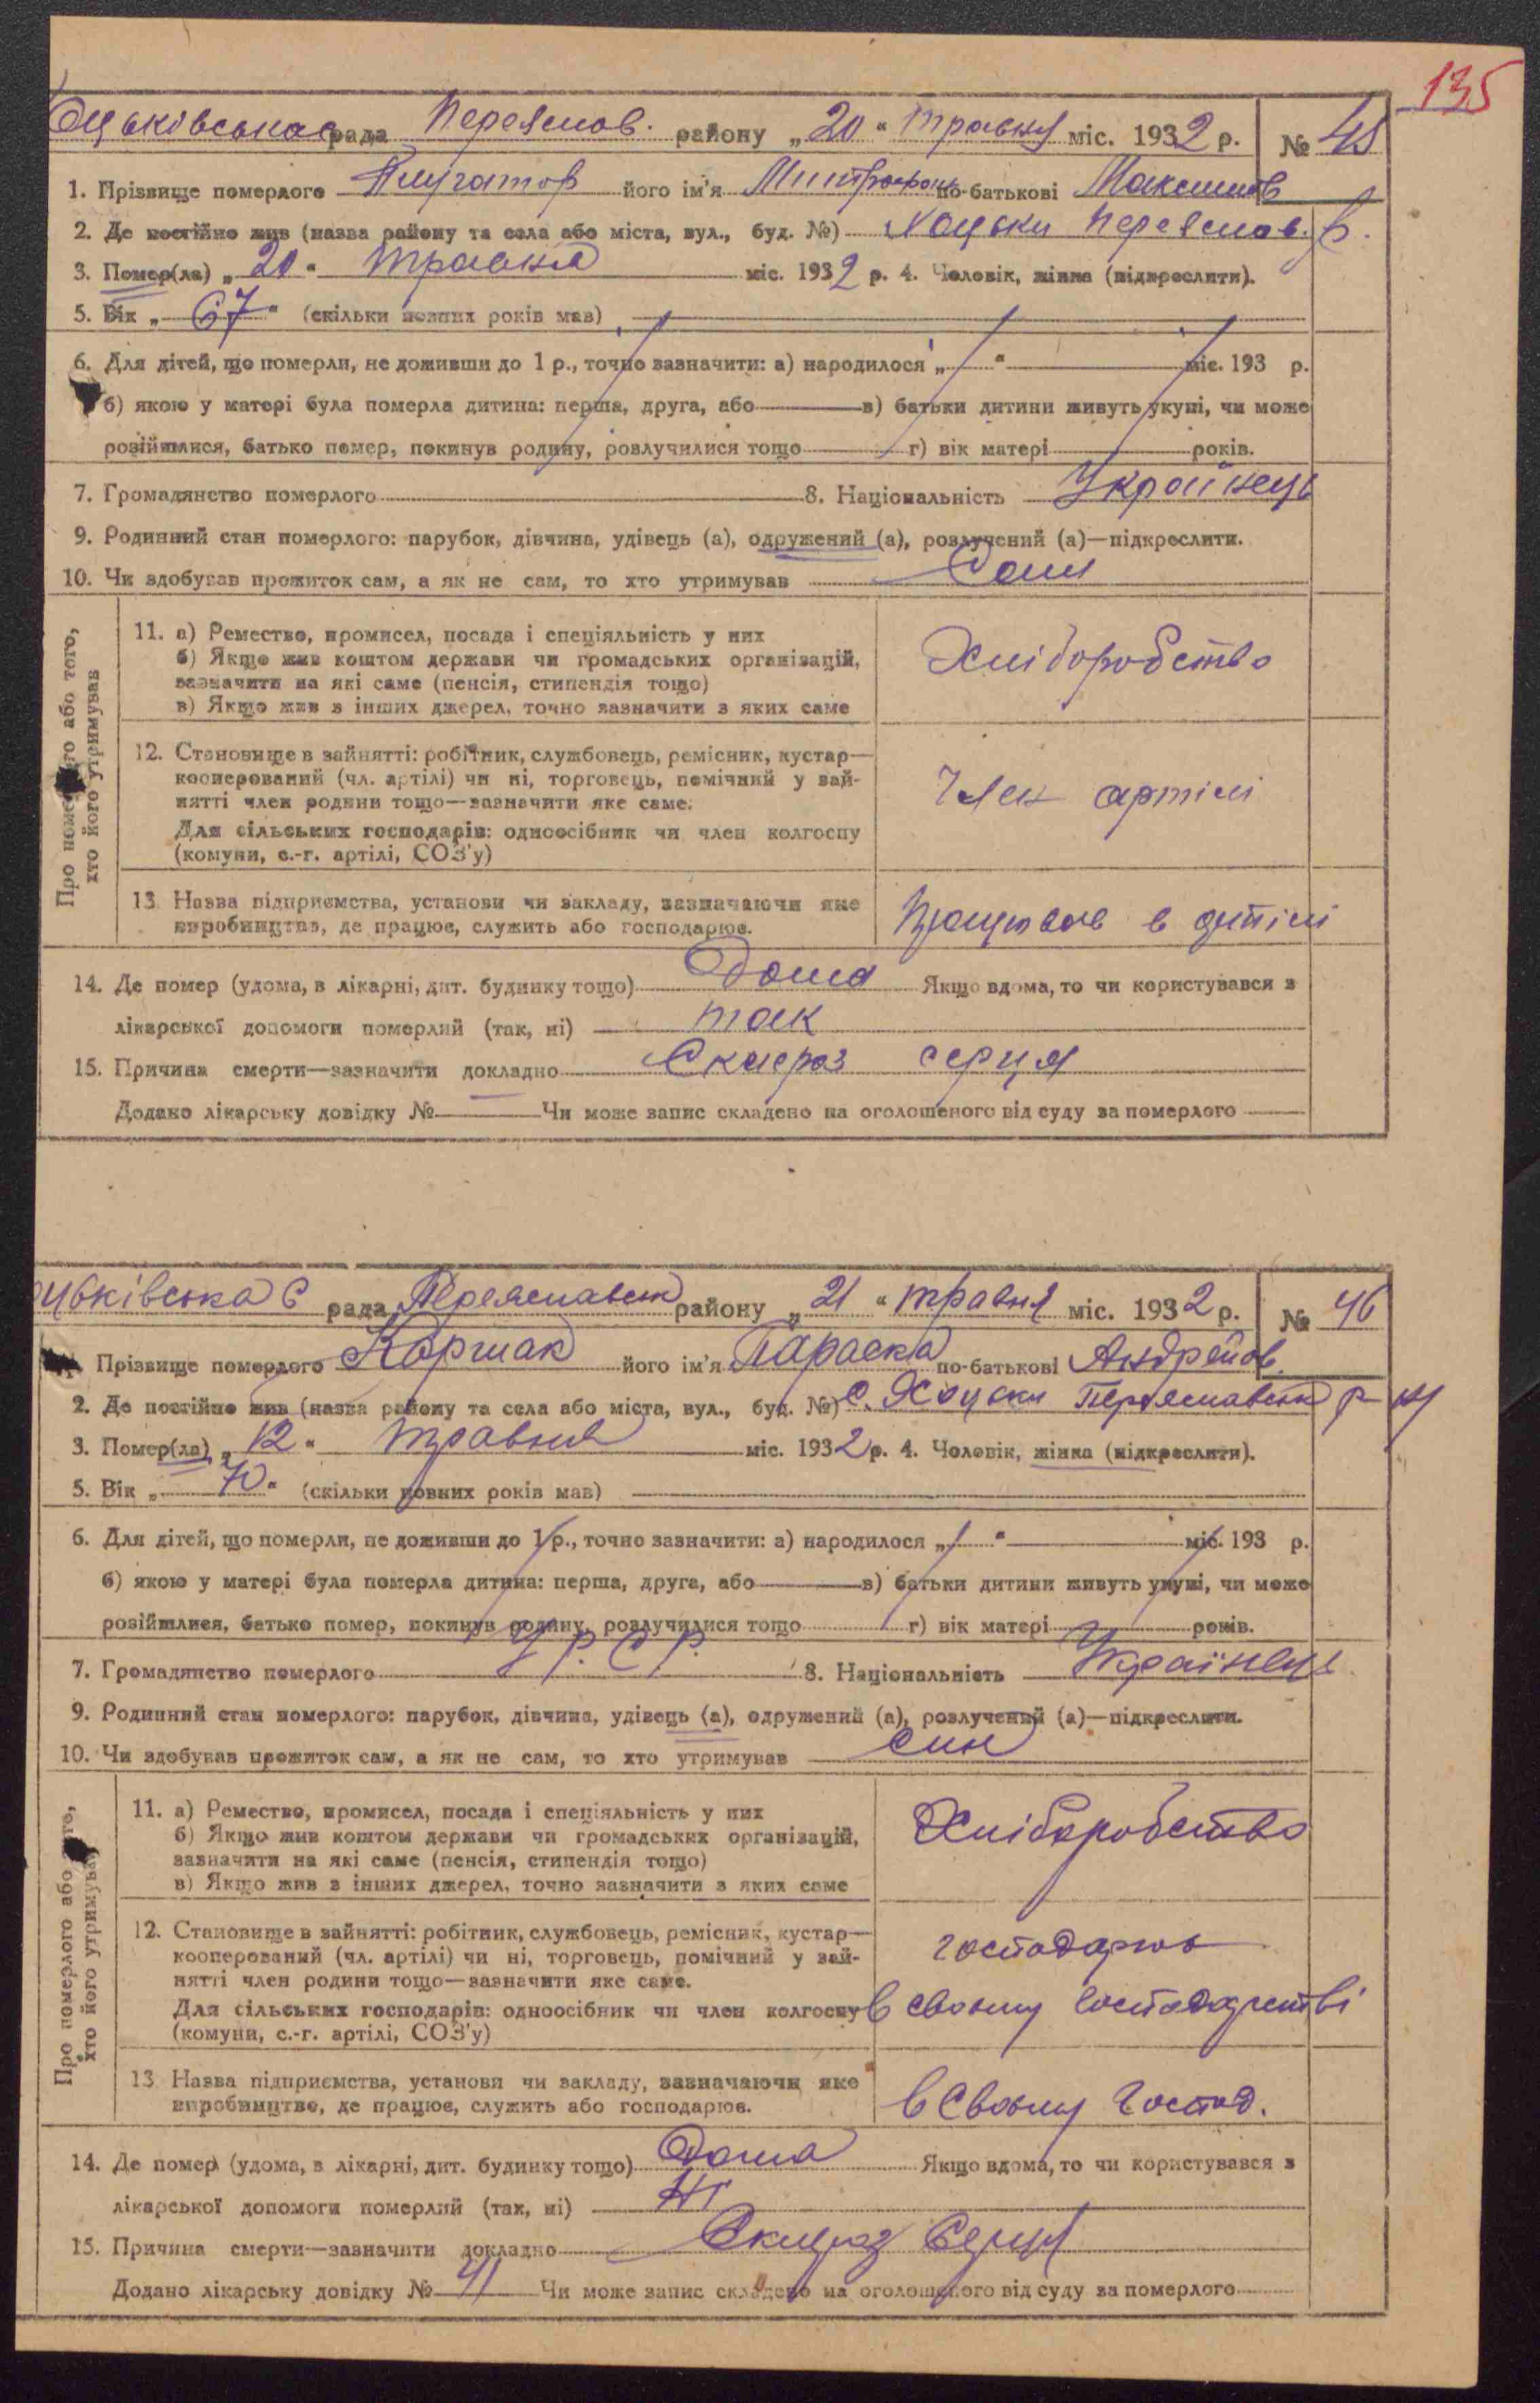 135
Хоцьківська рада Переяслов. району „20“ травня міс. 1932 р. № 45
1. Прізвище померлого його ім'я Митрофан по-батькові Максимов
2. Де постійно жив (назва району та села або міста, вул., буд. №) Хоцьки Переяслов. р.
3. Помер(ла) „20“ травня міс. 1932 р. 4. Чоловік, жінка (підкреслити).
5. Вік „67“ (скільки повних років мав)
6. Для дітей, що померли, не доживши до 1 р., точно зазначити: а) народилося „ “ міс. 193 р.
б) якою у матері була померла дитина: перша, друга, або в) батьки дитини живуть укупі, чи може
розійшлися, батько помер, покинув родину, розлучилися тощо г) вік матері років.
7. Громадянство померлого 8. Національність Українець
9. Родинний стан померлого: парубок, дівчина, удівець (а), одружений (а), розлучений (а)—підкреслити.
10. Чи здобував прожиток сам, а як не сам, то хто утримував Сам
Про померлого або того, хто його утримував
11. а) Ремество, промисел, посада і спеціяльність у них
б) Якщо жив коштом держави чи громадських організацій,
зазначити на які саме (пенсія, стипендія тощо)
в) Якщо жив з інших джерел, точно зазначити з яких саме
Хліборобство
12. Становище в зайнятті: робітник, службовець, ремісник, кустар—
кооперований (чл. артілі) чи ні, торговець, помічний у зай-
нятті член родини тощо—зазначити яке саме.
Для сільських господарів: одноосібник чи член колгоспу
(комуни, с.-г. артілі, СОЗ'у)
Член артілі
13. Назва підприємства, установи чи закладу, зазначаючи яке
виробництво, де працює, служить або господарює.
Працював в артілі
14. Де помер (удома, в лікарні, дит. будинку тощо) Дома Якщо вдома, то чи користувався з
лікарської допомоги померлий (так, ні) так
15. Причина смерти—зазначити докладно Склероз серця
Додано лікарську довідку № — Чи може запис складено на оголошеного від суду за померлого
Хоцьківська С рада Переяславськ району „21“ травня міс. 1932 р. № 46
1. Прізвище померлого Коршак його ім'я Параска по-батькові Андрейов.
2. Де постійно жив (назва району та села або міста, вул., буд. №) с. Хоцьки Переяславськ р
3. Помер(ла) „12“ травня міс. 1932 р. 4. Чоловік, жінка (підкреслити).
5. Вік „70“ (скільки повних років мав)
6. Для дітей, що померли, не доживши до 1 р., точно зазначити: а) народилося „ “ міс. 193 р.
б) якою у матері була померла дитина: перша, друга, або в) батьки дитини живуть укупі, чи може
розійшлися, батько помер, покинув родину, розлучилися тощо г) вік матері років.
7. Громадянство померлого У.Р.С.Р. 8. Національність Українець
9. Родинний стан померлого: парубок, дівчина, удівець (а), одружений (а), розлучений (а)—підкреслити.
10. Чи здобував прожиток сам, а як не сам, то хто утримував син
Про померлого або того, хто його утримував
11. а) Ремество, промисел, посада і спеціяльність у них
б) Якщо жив коштом держави чи громадських організацій,
зазначити на які саме (пенсія, стипендія тощо)
в) Якщо жив з інших джерел, точно зазначити з яких саме
Хліборобство
12. Становище в зайнятті: робітник, службовець, ремісник, кустар—
кооперований (чл. артілі) чи ні, торговець, помічний у зай-
нятті член родини тощо—зазначити яке саме.
Для сільських господарів: одноосібник чи член колгоспу
(комуни, с.-г. артілі, СОЗ'у)
господарює
в своєму господарстві
13. Назва підприємства, установи чи закладу, зазначаючи яке
виробництво, де працює, служить або господарює.
в своєму господ.
14. Де помер (удома, в лікарні, дит. будинку тощо) Дома Якщо вдома, то чи користувався з
лікарської допомоги померлий (так, ні) Ні
15. Причина смерти—зазначити докладно Склероз Серця
Додано лікарську довідку № 41 Чи може запис складено на оголошеного від суду за померлого